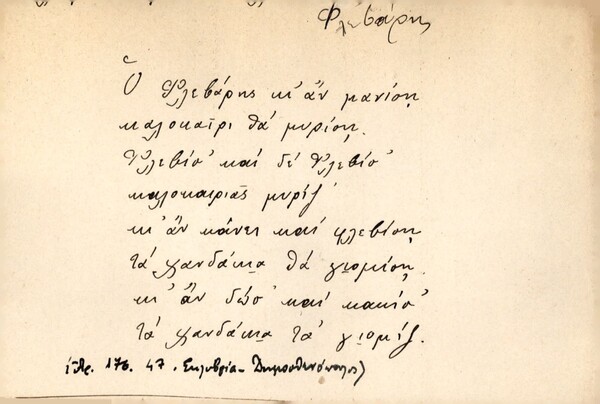 Φλεβάρης
Ὁ Φλεβάρης κι' ἂν μανίσῃ
καλοκαῖρι θὰ μυρίσῃ.
Φλεβίσ' καὶ δὲ Φλεβίσ'
καλοκαιριᾶς μυρίζ'
κι' ἂν κάνει καὶ φλεβίσῃ
τὰ χανδάκια θὰ γιομίσῃ.
κι' ἂν δώσ' καὶ κακίσ'
τὰ χανδάκια τὰ γιομίζ.
176. 47. Σηλυβρία - Δημοσθενόπουλος)